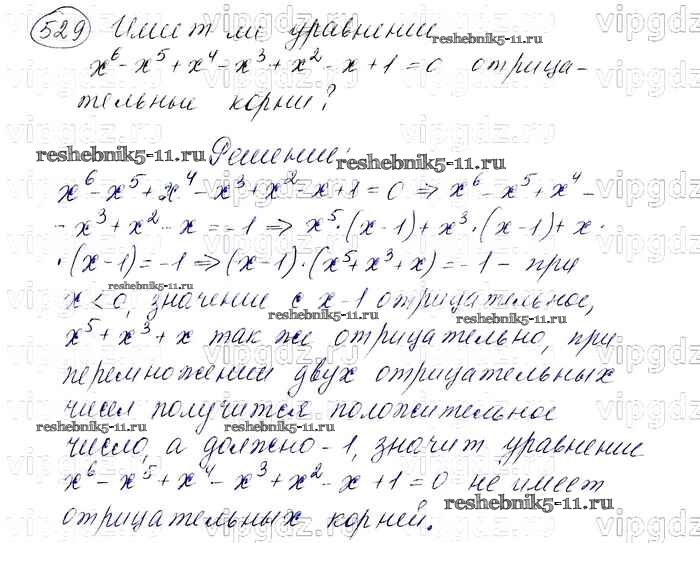 529 Имеет ли уравнение
x⁶ - x⁵ + x⁴ - x³ + x² - x + 1 = 0 отрица-
тельные корни?
Решение:
x⁶ - x⁵ + x⁴ - x³ + x² - x + 1 = 0 ⇒ x⁶ - x⁵ + x⁴ -
- x³ + x² - x = -1 ⇒ x⁵·(x-1) + x³·(x-1) + x·
·(x-1) = -1 ⇒ (x-1)·(x⁵+x³+x) = -1 - при
x < 0, значение с x-1 отрицательное,
x⁵ + x³ + x так же отрицательно, при
перемножении двух отрицательных
чисел получится положительное
число, а должно -1, значит уравнение
x⁶ - x⁵ + x⁴ - x³ + x² - x + 1 = 0 не имеет
отрицательных корней.
reshebnik5-11.ru
vipgdz.ru